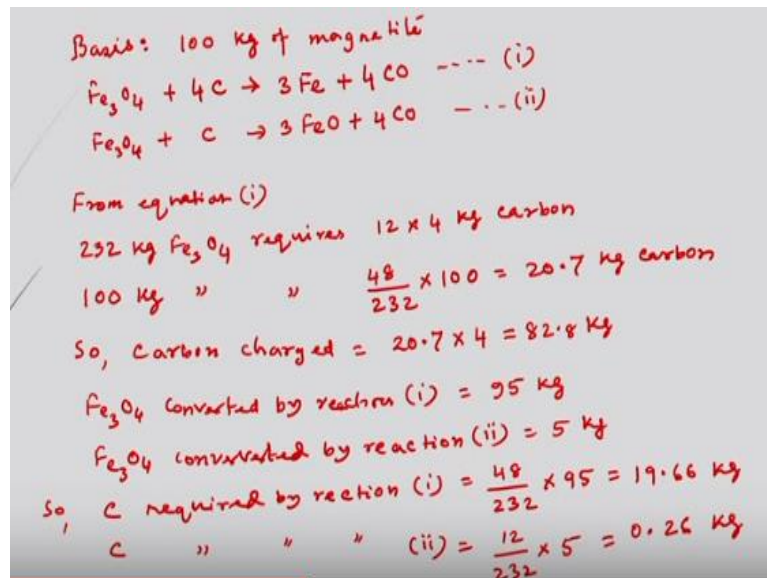 Basis: 100 kg of magnetite
Fe₃O₄ + 4C → 3Fe + 4CO ---- (i)
Fe₃O₄ + C → 3FeO + 4CO - -- (ii)
From equation (i)
232 kg Fe₃O₄ requires 12 x 4 kg carbon
100 kg " " 48/232 x 100 = 20.7 kg carbon
So, Carbon charged = 20.7 x 4 = 82.8 kg
Fe₃O₄ converted by reaction (i) = 95 kg
Fe₃O₄ converted by reaction (ii) = 5 kg
So, C required by rection (i) = 48/232 x 95 = 19.66 kg
C " " " (ii) = 12/232 x 5 = 0.26 kg